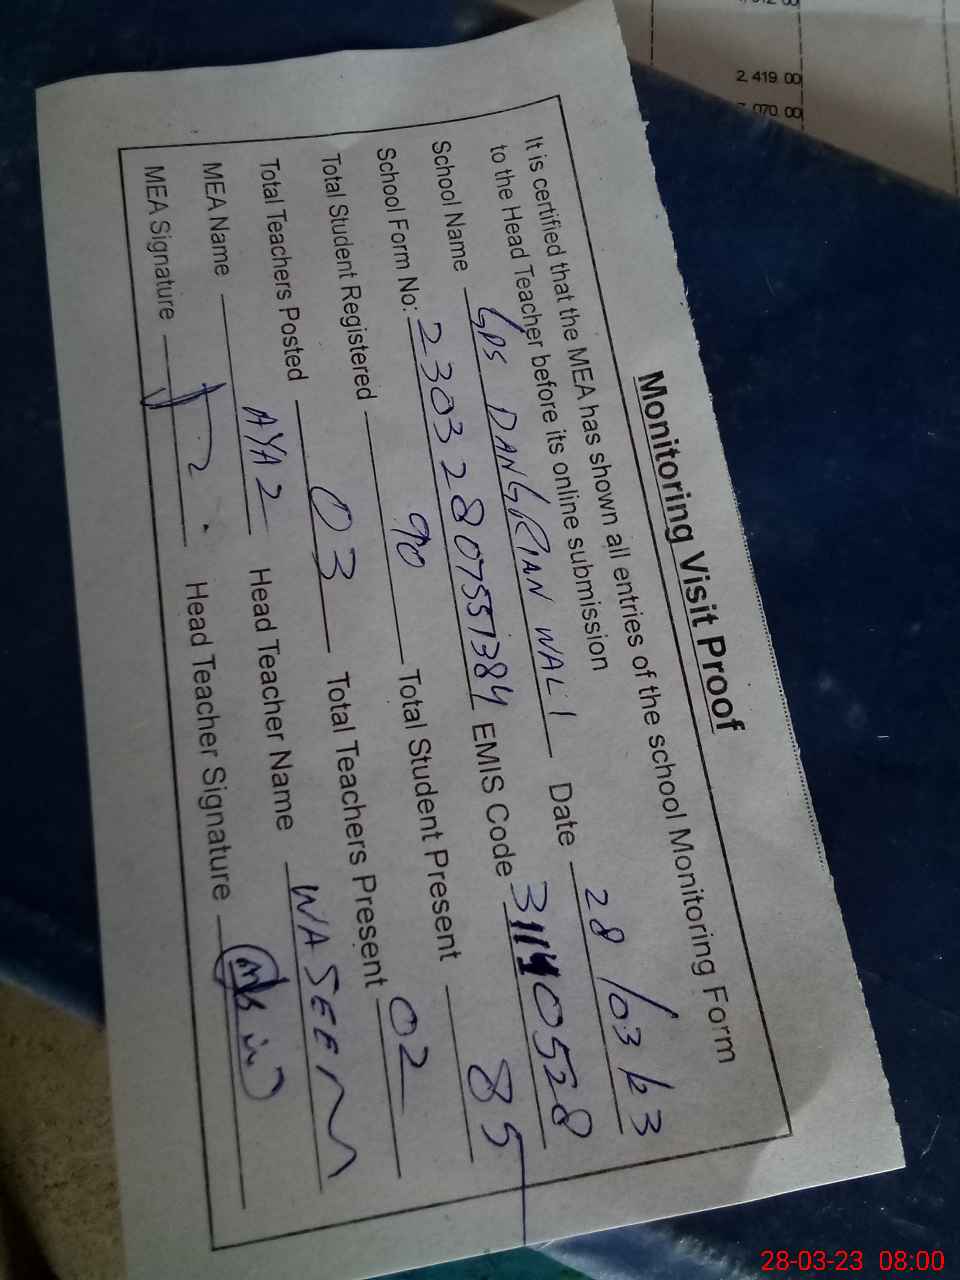 2,419.00
Monitoring Visit Proof
It is certified that the MEA has shown all entries of the school Monitoring Form
to the Head Teacher before its online submission
School Name GPS DANGRIAN WALI Date 28/03/23
School Form No: 23032807551384 EMIS Code 31140528
Total Student Registered 90 Total Student Present 85
Total Teachers Posted 03 Total Teachers Present 02
MEA Name AYAZ Head Teacher Name WASEEM
MEA Signature Head Teacher Signature
28-03-23 08:00